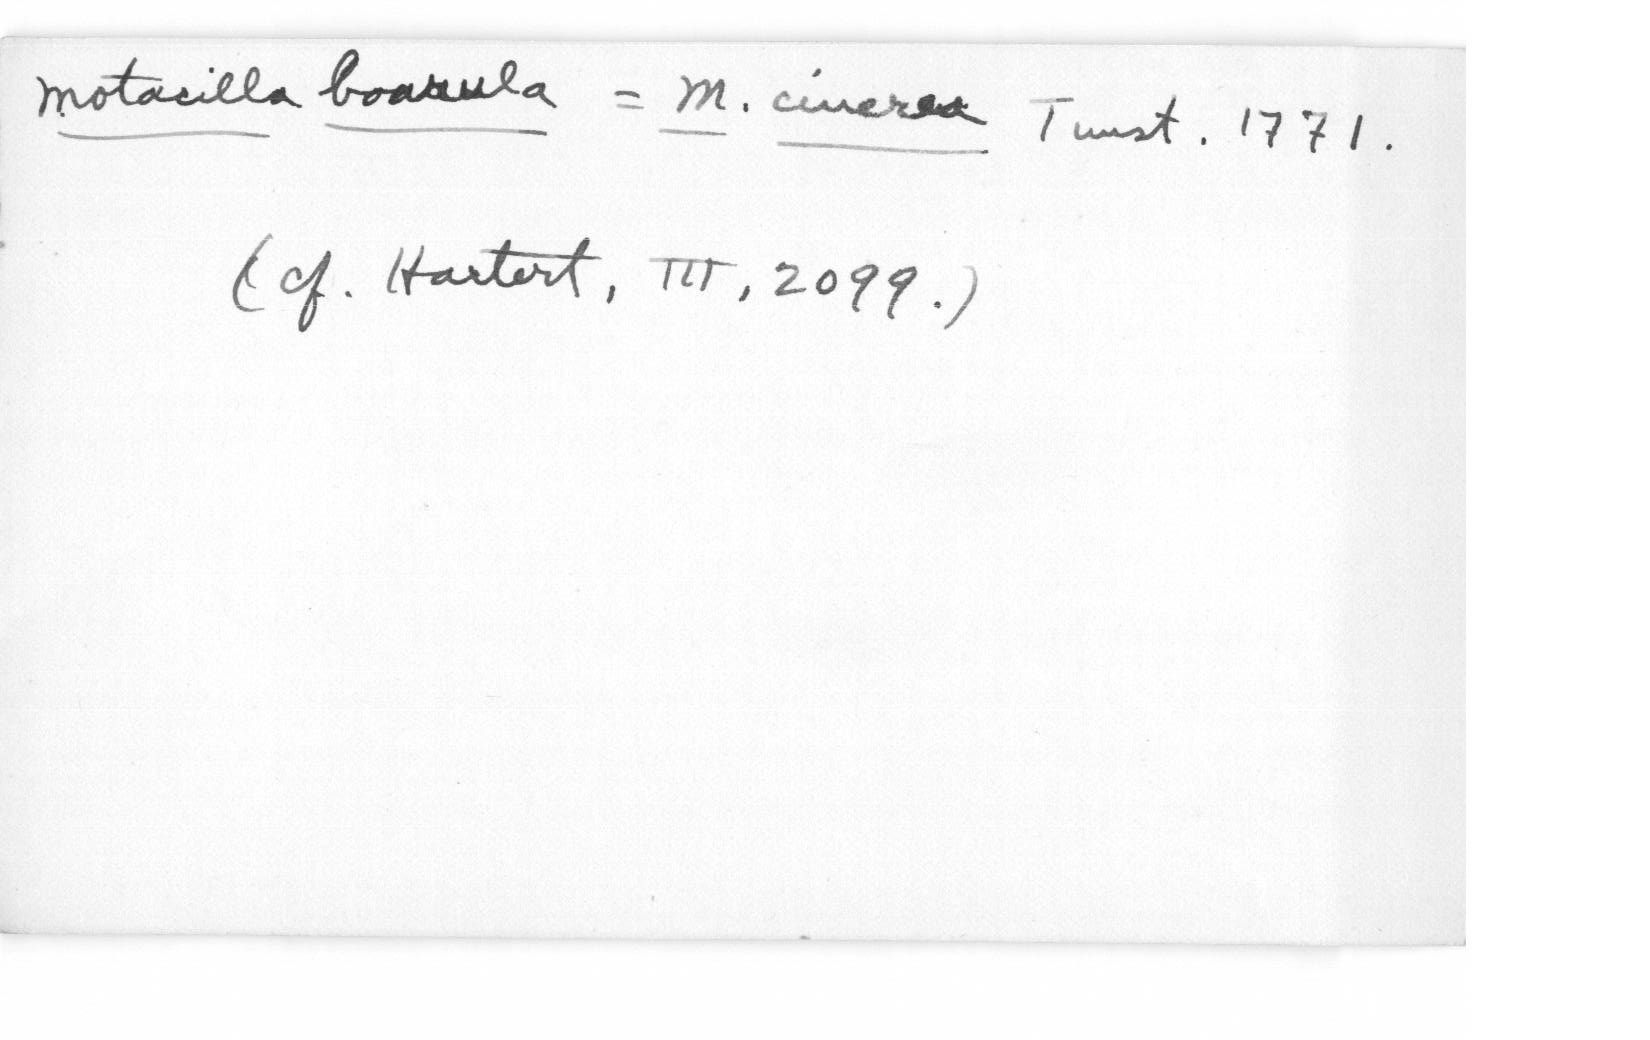 Motacilla boarula = M. cinerea Tunst. 1771.
(cf. Hartert, III, 2099.)